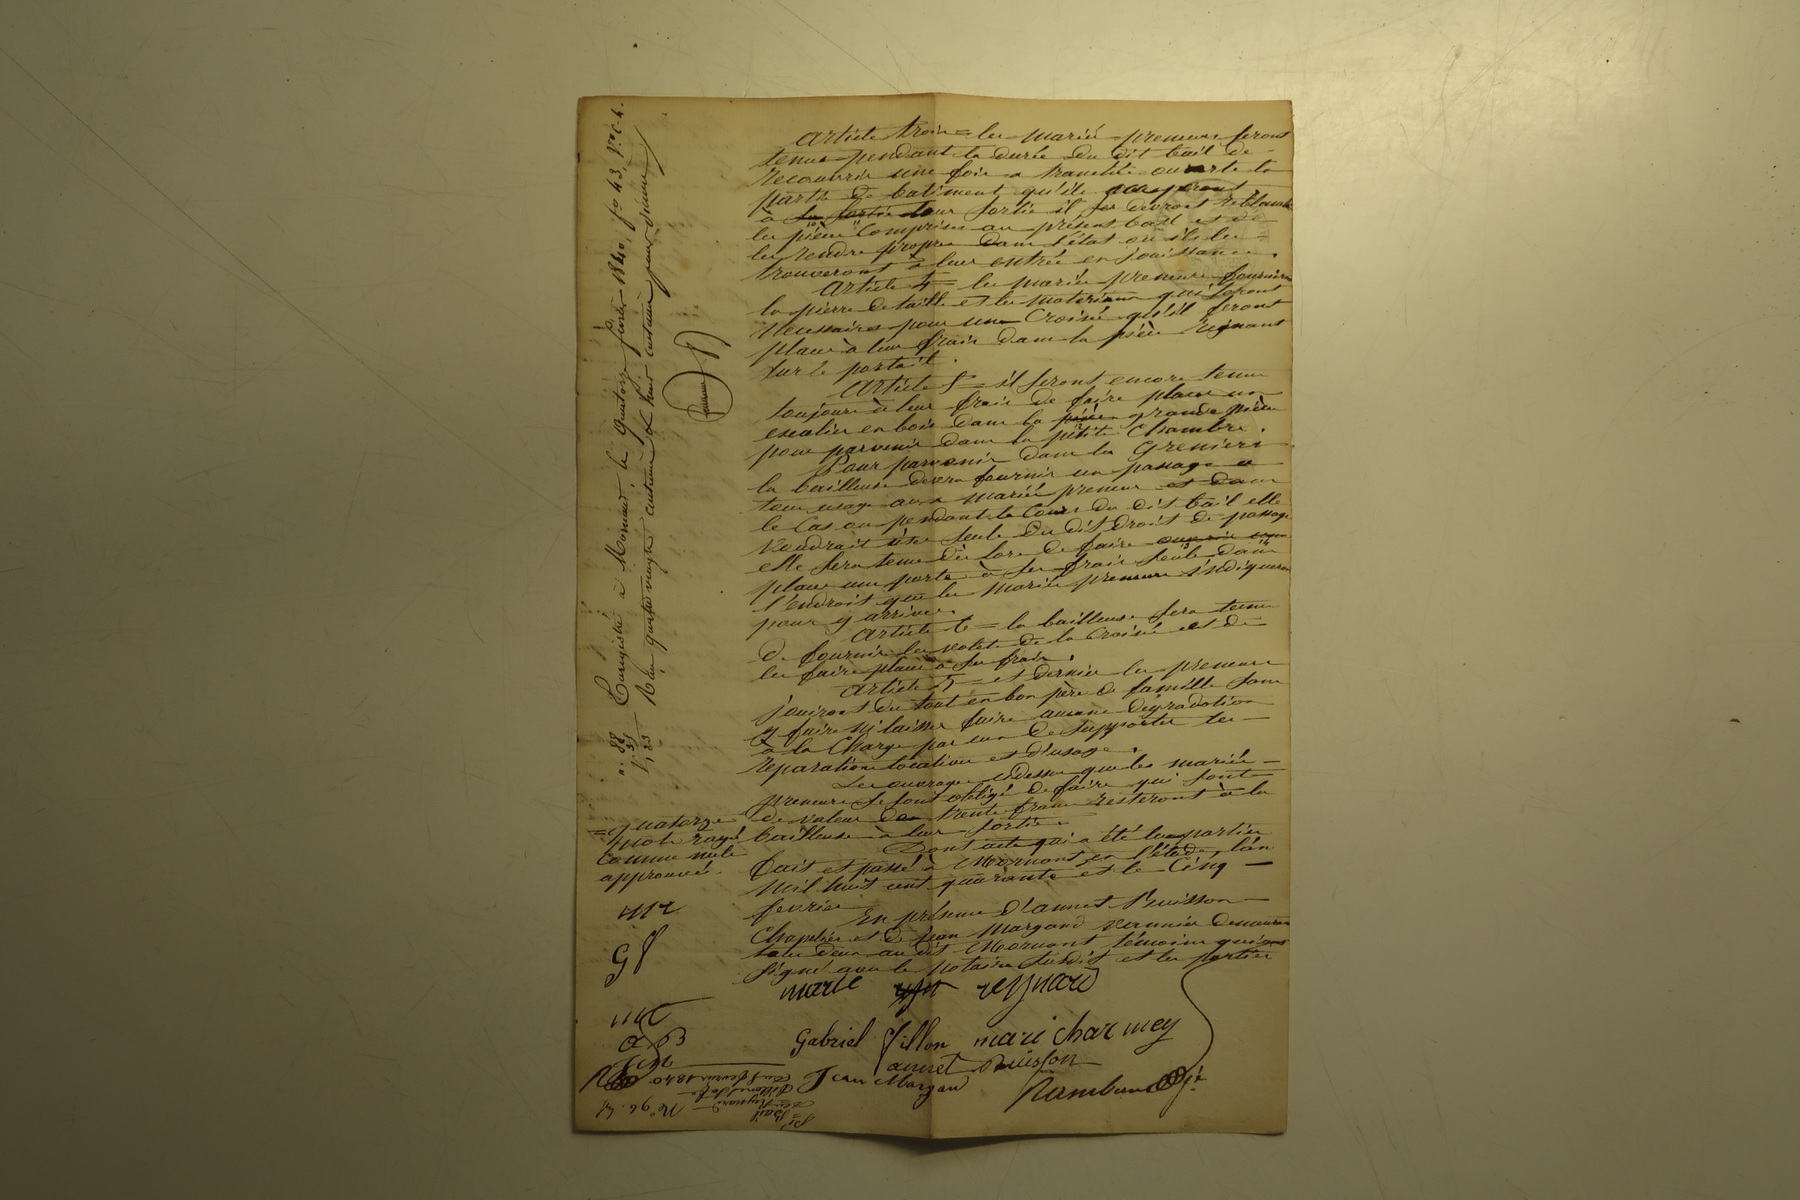 article trois = les mariés preneurs seront
tenus pendant la durée du dit bail de
recouvrir une fois a tranchée ouverte la
partie de batiment qu'ils occuperont
à leur sortie il devront
les pièces comprises au présent bail et de
les rendre propres dans l'état ou ils les =
trouveront à leur entrée en jouissance.
article 4 = les mariés preneurs fourniront
la pierre de taille et les materiaux qui seront
necessaires pour une Croisée qu'il feront
placer à leur frais dans la pièce régnant
sur le portail.
article 5 = il seront encore tenus
toujours à leur frais de faire placer un
escalier en bois dans la grande pièce
pour parvenir dans la petite Chambre.
Pour parvenir dans les Greniers
la bailleuse devra fournir un passage a
tous usage aux mariés preneurs et dans
le Cas ou pendant le Cours du dit bail elle
voudrait être seule du dit Droit de passage
elle sera tenue dès lors de faire
placer une porte à ses frais seule dans
l'endroit que les mariés preneurs indiqueront
pour y arriver.
article 6 = la bailleuse sera tenue
de fournir les volets de la Croisée et de
les faire placer à ses frais.
article 7 = et dernier les preneurs
jouiront du tout en bon père de famille sans
y faire ni laisser faire aucune dégradation
à la Charge par eux de supporter les —
réparations locatives et d'usage.
Les ouvrages cidessus que les mariés —
preneurs se sont obligé de faire qui sont
de valeur de trente francs resteront à la
bailleuse à leur sortie =
Dont acte qui a été lu aux parties
fait et passé à Mornant en l'étude, l'an
mil huit cent quarante et le Cinq —
fevrier
En présence d'annet Buisson —
Chapelier et de jean Margand vannier demeurant
tous deux au dit Mornant témoins qui ont
signé avec le notaire susdit et les parties
= quatorze
mots rayé
comme nuls
approuvés.
marie reynard
Gabriel fillon mari charmey
annet Buisson
Jean Margand
Rambaud
Gf
Enregistré à Mornant, le quatorze février 1840, fo 43, Vo C. 4.
Reçu quatre vingt huit centimes pour décime
Bail
Reynard
Du 5 fevrier 1840
No 96.